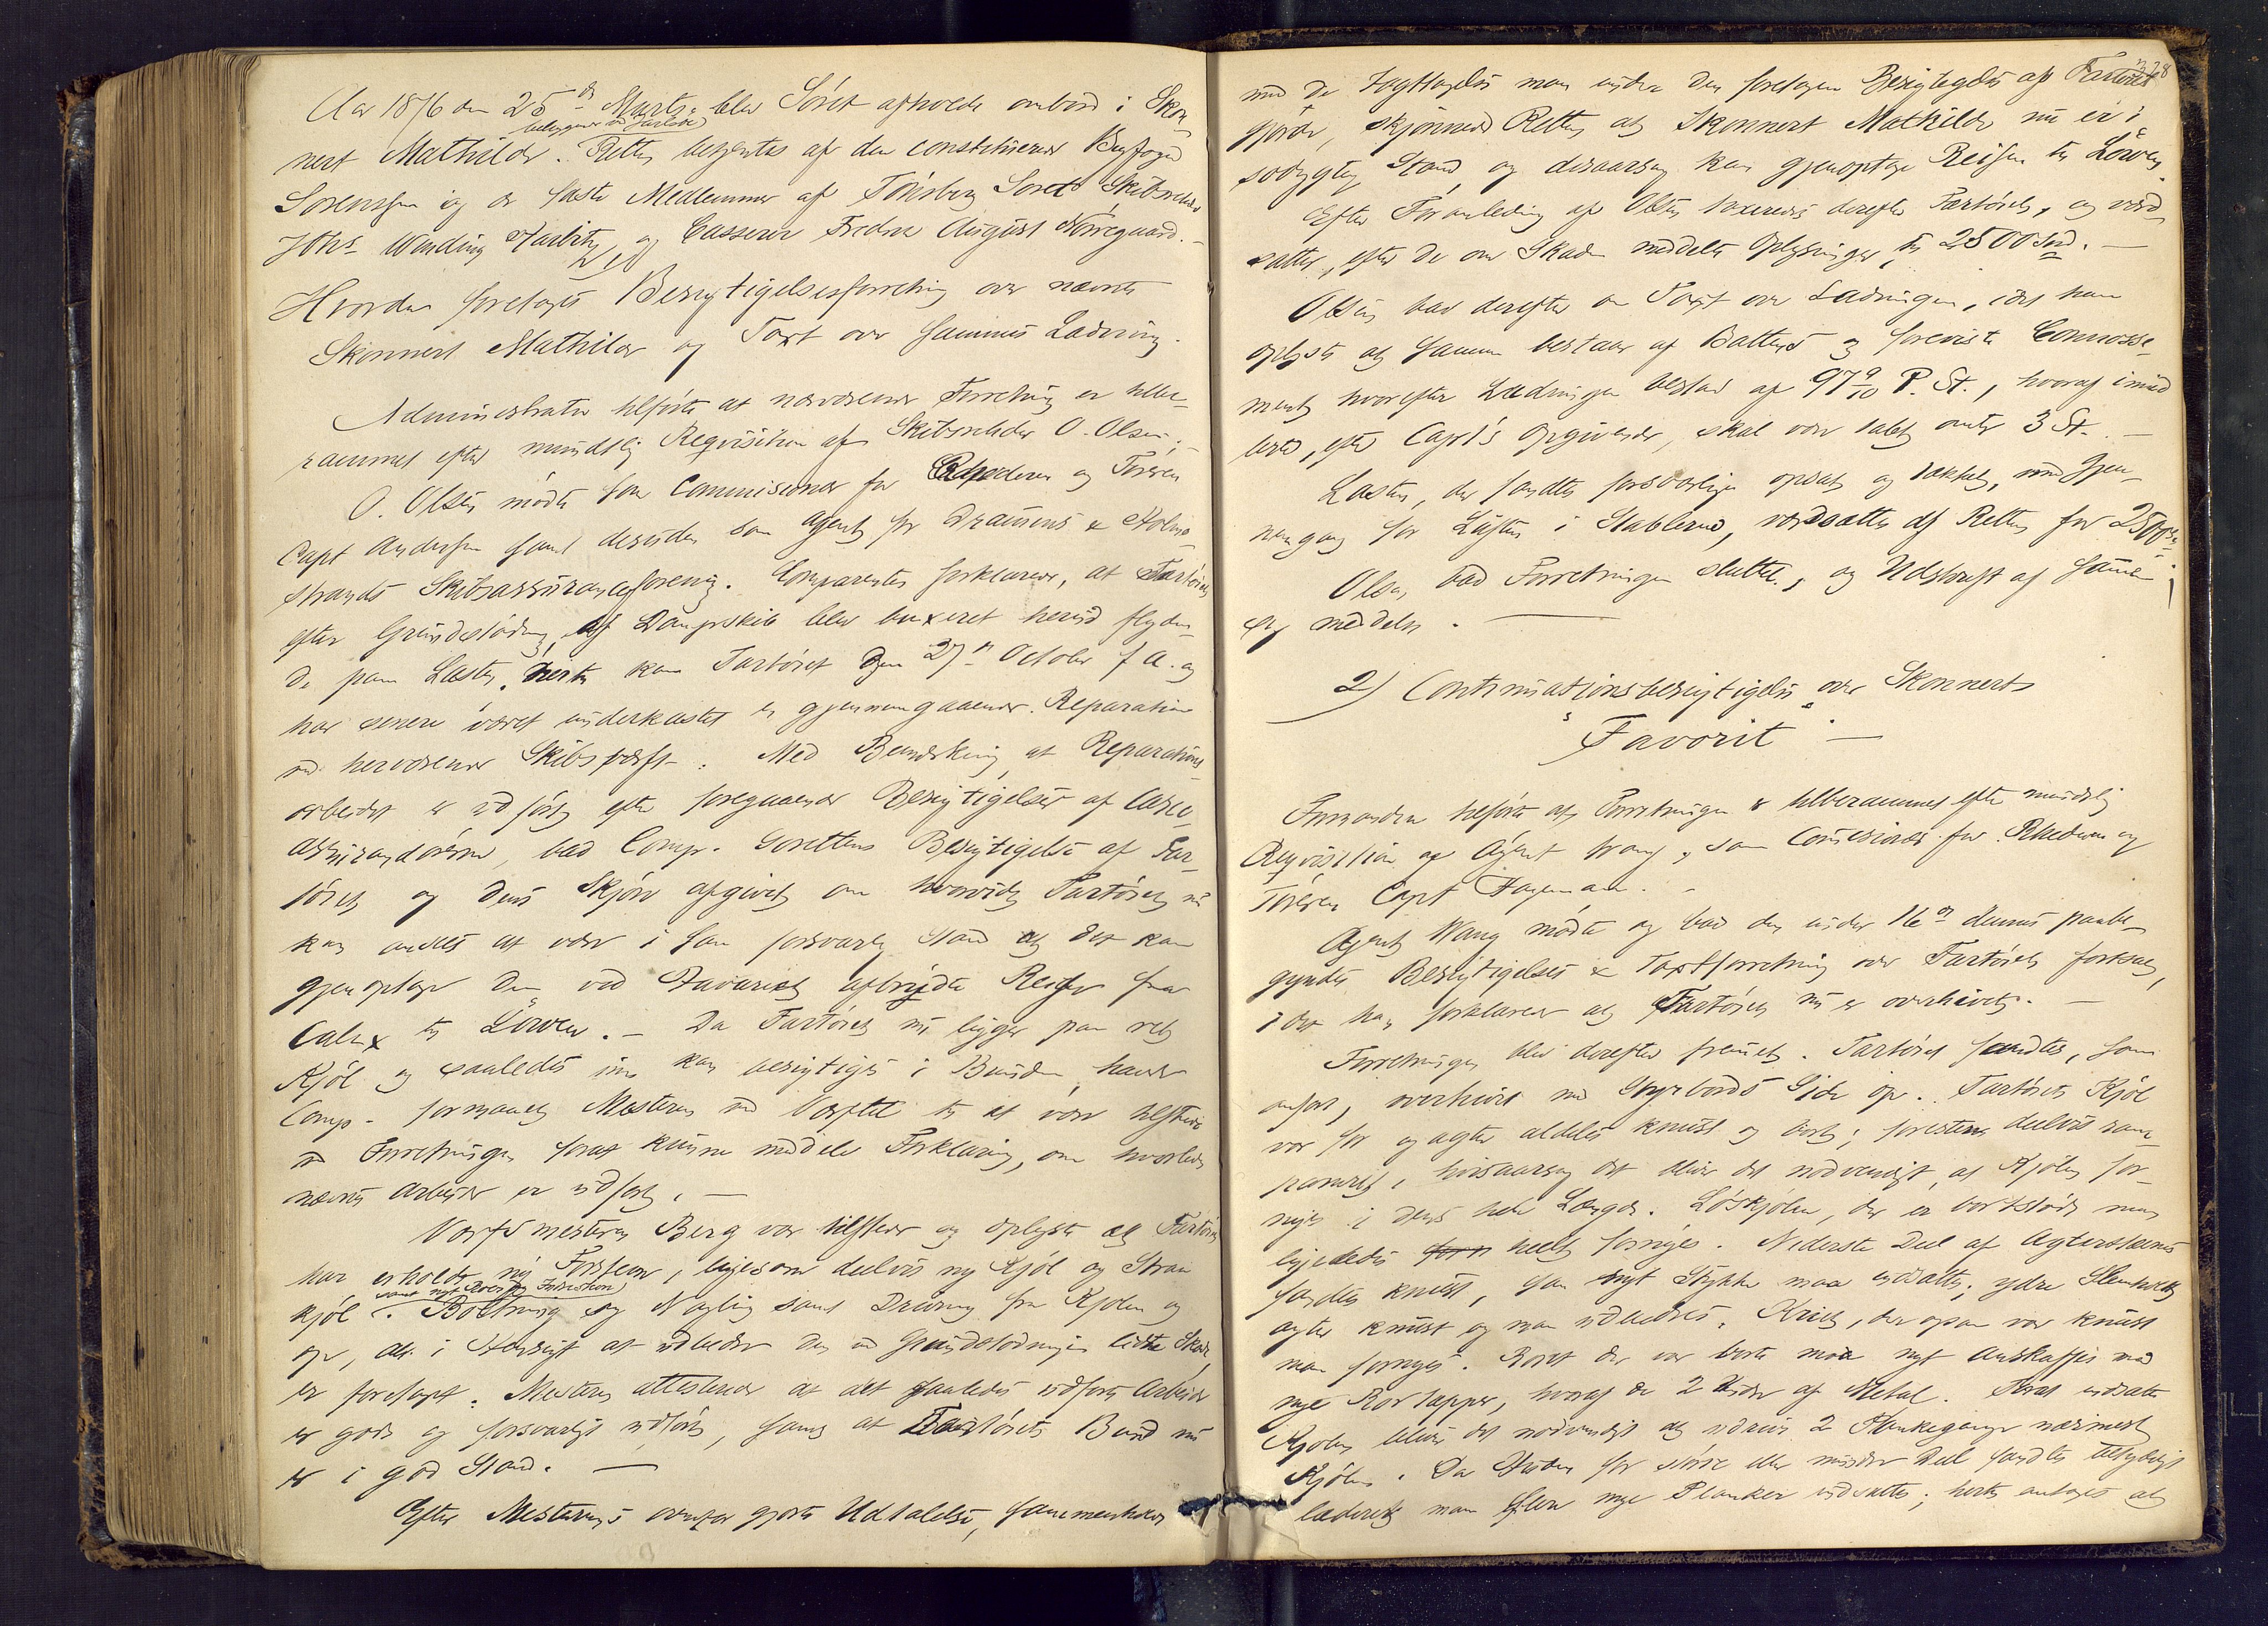 Aar 1876 den 25de Marts blev Söret afholdt ombord i Skon-
nert Mathilde. Retten betjentes af den constituerede Byfoged
Sörensen og de faste Medlemmer af Tönsberg Söret Skibsreder
Joh's Wencling og Casserer Fredrik August Nörregaard.
Hvorda foretoges Besigtigelsesforretning over nævnte
Skonnert Mathilde og Taxt over sammes Ladning.
Administrator tilförte at nærværende Forretning er tilbe-
rammet efter mundtlig Reqvisition af Skibsreder O. Olsen.
O. Olsen mödte som Commissionær for Rhederen og Föreren
Capt Andersen samt desuden som Agent for Drammens & Holme-
strands Skibsassuranceforening. Comparenten forklarede, at Fartöiet
efter Grundstödning af Dampskib blev buxeret herind flyden-
de paa Lasten. hertil kom Fartöiet den 27de October f A. og
har senere været underkastet en gjennemgaaende Reparation
ved herværende Skibsværft. Med Bemærkning at Reparations-
arbeidet er udfört efter foregaaende Besigtigelser af Casco-
assurandörerne, bad Comp. Sörettens Besigtigelse af Far-
töiet og dens Skjön afgivet om hvorvidt Fartöiet nu
kan ansees at være i saa forsvarlig Stand at det kan
gjenoptage den ved Havariet afbrudte Reise fra
Calix til Löwen. - Da Fartöiet nu ligger paa ret
Kjöl og saaledes inn kan besigtiges i Bunden, havde
Comp. formaaet Mesteren ved Værftet til at være tilstede
ved Forretningen forat kunne meddele Forklaring, om hvorledes
nævnte Arbeide er udfört. -
Værftsmesteren Berg var tilstede og oplyste at Fartöiet
har erholdt ny Forstevn, ligesom deelvis ny Kjöl og Straa-
samt nyt Roer
kjöl. Boltning og Nagling samt Drivning fra Kjölen og
op, alt i Hensigt at udbedre den ved Grundstödningen lidte Skade,
er foretaget. Mesteren attesterede at det saaledes udförte Arbeide
er godt og forsvarligt udfört, samt at Fartöiets Bund nu
er i god Stand. -
Efter Mesterens ovenfor gjorte Udtalelse, sammenholdt
328
med de Iagttagelser man under den foretagne Besigtigelse af Fartöiet
gjorde, skjönnede Retten at Skonnert Mathilde nu er i
södygtig Stand, og desaarsag kan gjenoptage Reisen til Löwen.
Efter Foranledning af Olsen taxeredes derefter Fartöiet, og værd-
sattes, efter de om Skaden meddelte Oplysninger, til 2500 Spd. -
Olsen bad derefter om Taxt over Ladningen, idet han
oplyste at samme bestaar af Battens og foreviste Connosse-
ment hvorefter Ladningen bestod af 97 9/10 P. St., hvoraf imid-
lertid, efter Capt's Opgivende, skal være tabt omtr 3 St. -
Lasten, der fandtes forsvarligen opsat og takket, med Gjen-
nemgang for Luften i Stablerne, værdsattes af Retten for
Olsen bad Forretningen sluttet, og Udskrift af samme
sig meddelt. -
2) Continuationsbesigtigelse over Skonnert
"Favorit" -
Formanden tilförte at Forretningen er tilberammet efter mundtlig
Reqvisition af Agent Wang, som Comissionær for Rhederen og
Föreren Capt Hagemann. -
Agent Wang mödte og bad den under 16de dennes paabe-
gyndte Besigtigelses & Taxtforretning over Fartöiet fortsat,
idet han forklarede at Fartöiet nu er overhivet. -
Forretningen blev derefter fremet. Fartöiet fandtes, som
anfört, overhivet med Styrbords Side op. Fartöiets Kjöl
var for og agter aldeles knust og borte; forresten deelvis ram-
poneret, hvisaarsag det bliver det nödvendigt, at Kjölen for-
nyes i dens hele Længde. Löskjölen, der er bortstödt maa
ligeledes heelt fornyes. Nederste Deel af Agterstevnen
fandtes knust, saa nyt Stykke maa isættes; ydre
agter knust og maa udbedres. Knæet, der ogsaa var knust
maa fornyes. Roret der var borte maa nyt anskaffes med
nye Rortapper, hvoraf de 2 af Metal. Forat indsætte
Kjölen bliver det nödvendigt at udrive 2 Plankegange nærmest
Kjölen. Da Huden for större eller mindre Deel fandtes
læderet maa flere nye Planker indsættes; hertil antages at